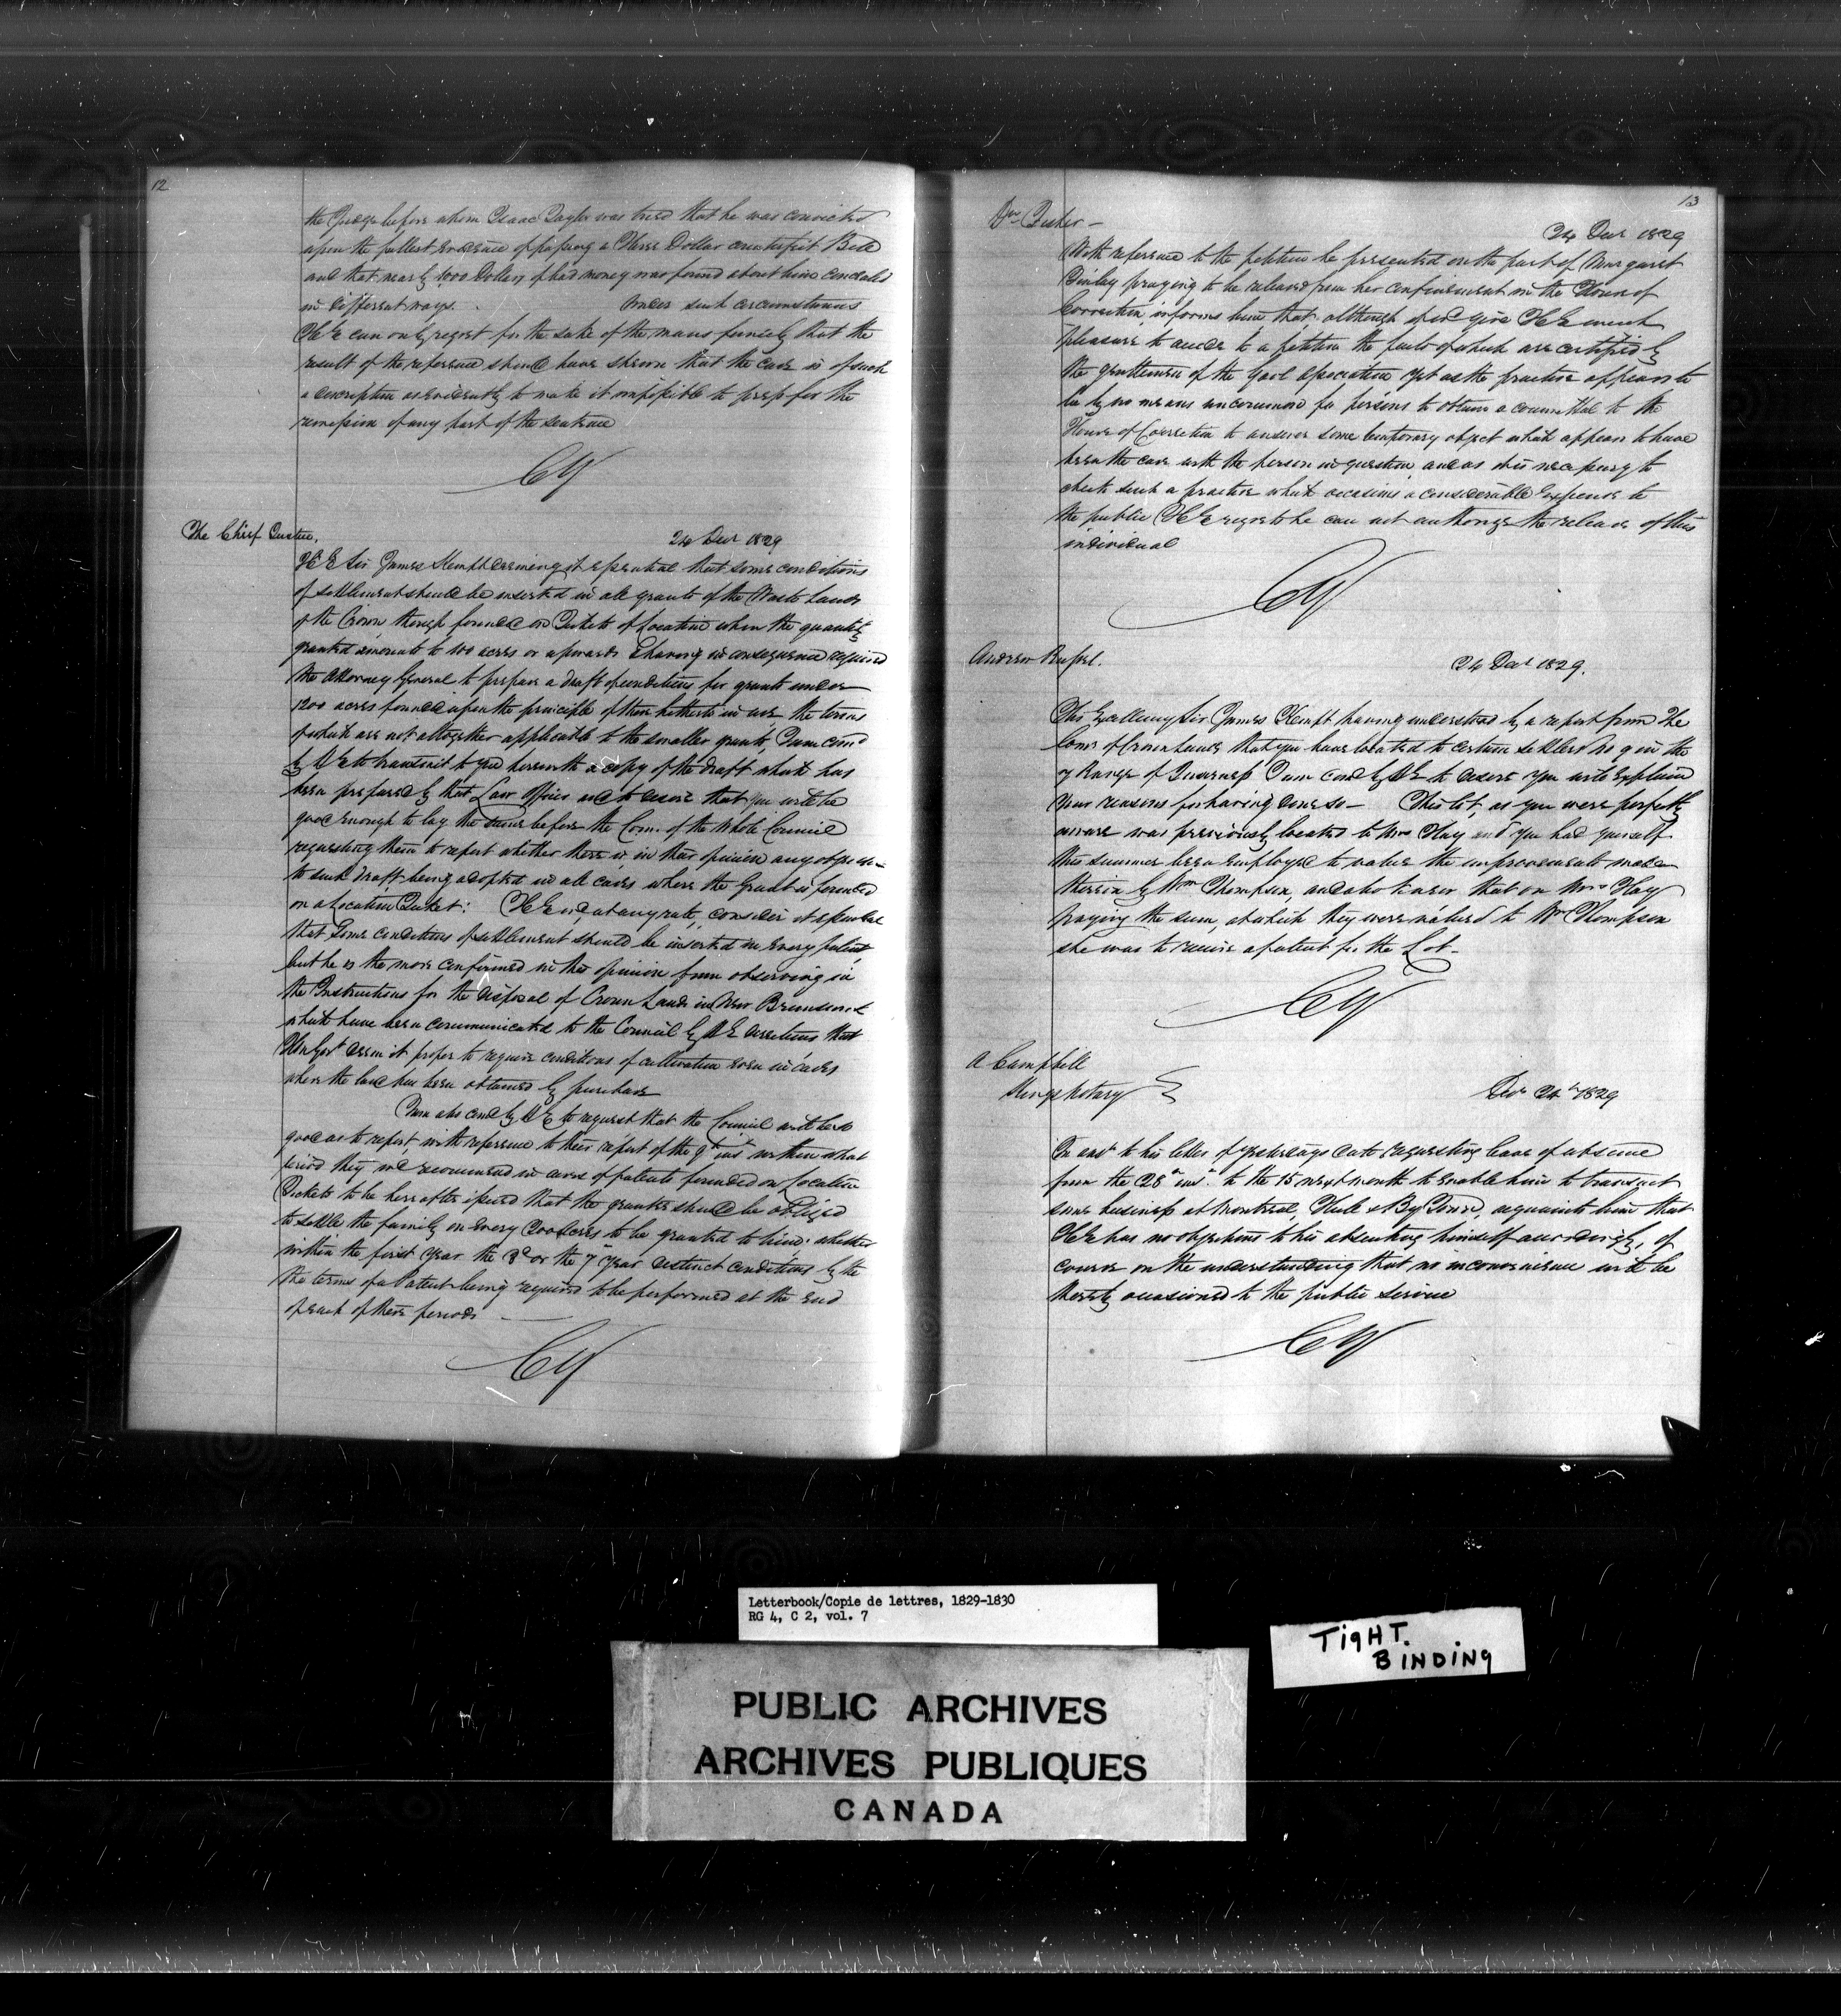 12
the Judge before whom Isaac Taylor was tried that he was convicted
upon the fullest evidence of passing a Three Dollar counterfeit Bill
and that nearly 1000 Dollars of bad money was found about him concealed
in different ways. Under such circumstances
H E can only regret for the sake of the mans family that the
result of the reference should have shewn that the case is of such
a description as evidently to make it impossible to press for the
remission of any part of the sentence
CY
The Chief Justice.
24 Decr 1829
H E Sir James Kempt deeming it essential that some conditions
of settlement should be inserted in all grants of the Waste Lands
of the Crown though founded on Tickets of Location when the quantity
granted amounts to 100 acres or upwards & having in consequence required
the Attorney General to prepare a draft of conditions for grants under
1200 acres founded upon the principle of those hitherto in use the terms
of which are not altogether applicable to the smaller grants, I am comd
by H E to transmit to you herewith a copy of the draft which has
been prepared by that Law Officer and to desire that you will be
good enough to lay the same before the Com. of the Whole Council
requesting them to report whether there is in their opinion any objection
to such draft being adopted in all cases where the Grant is founded
on a Location Ticket: H E wd, at any rate, consider it essential
that some conditions of settlement should be inserted in every patent
but he is the more confirmed in this opinion from observing in
the Instructions for the disposal of Crown Lands in New Brunswick
which have been communicated to the Council by H E's directions that
His Govt deem it proper to require conditions of cultivation even in cases
where the land has been obtained by purchase
I am also comd by H E to request that the Council will be so
good as to report, with reference to their report of the 9th inst within what
period they wd recommend in cases of patents founded on Location
Tickets to be hereafter issued that the grantee should be obliged
to settle the family on every 200 acres to be granted to him: whether
within the first year the 3d or the 7th year distinct conditions by the
the terms of a Patent being required to be performed at the end
of each of these periods
CY
13
Dr Tucker —
24 Decr 1829
With reference to the petition he presented on the part of Margaret
Finlay praying to be released from her confinement in the House of
Correction, informs him that although it wd give H E much
pleasure to accede to a petition the facts of which are certified by
the gentlemen of the Gaol Association yet as the practice appears to
be by no means uncommon for persons to obtain a committal to the
House of Correction to answer some temporary object which appears to have
been the case with the person in question and as it is necessary to
check such a practice which occasions a considerable expense to
the public H E regrets he can not authorize the release of this
individual
CY
Andrew Russel.
24 Decr 1829.
His Excellency Sir James Kempt having understood by a report from the
Comr of Crown Lands that you have located to certain settlers No 9 in the
7 Range of Inverness I am comd by H E to desire you will explain
your reasons for having done so — This lot, as you were perfectly
aware was previously located to Mrs Hay and you had yourself
this summer been employed to value the improvements made
therein by Wm Thompson, and also knew that on Mrs Hay
paying the sum, at which they were valued to Wm Thompson
she was to receive a patent for the Lot —
CY
A Campbell
Kings Notary
Decr 24th 1829
In answ to his letter of yesterdays date requesting leave of absence
from the 28th inst. to the 15 next month to enable him to transact
some business at Montreal, Hull & By Town, acquaints him that
H E has no objections to his absenting himself accordingly, of
course on the understanding that no inconvenience will be
thereby occasioned to the public service
CY
Letterbook/Copie de lettres, 1829-1830
RG 4, C 2, vol. 7
TigHT.
BINDINg
PUBLIC ARCHIVES
ARCHIVES PUBLIQUES
CANADA